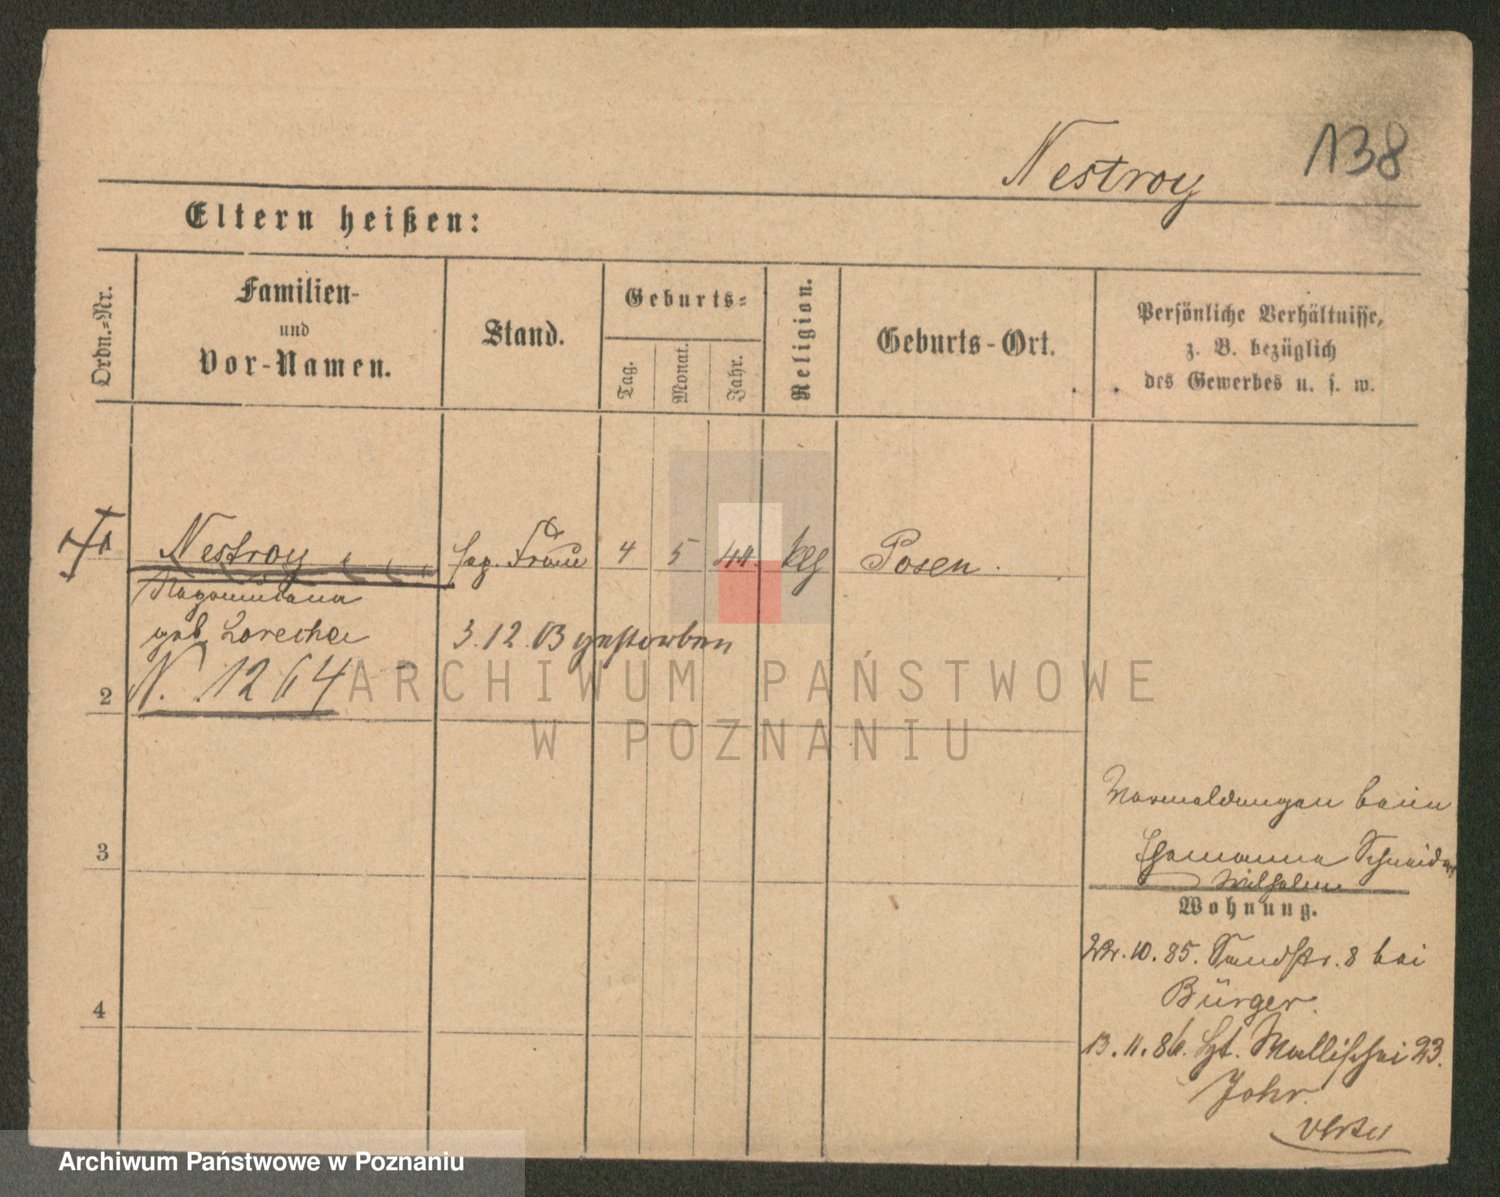 Nestroy 138
Eltern heißen:
Ordn.-Nr.
Familien-
und
Vor-Namen.
Stand.
Geburts-
Tag.
Monat.
Jahr.
Religion.
Geburts-Ort.
Persönliche Verhältnisse,
z. B. bezüglich
des Gewerbes u. s. w.
Nestroy Frau 4 5 44. Posen.
geb.
3.12.03 gestorben
N. 1264
2
3
4
ARCHIWUM PAŃSTWOWE
W POZNANIU
beim
Schneider
Wilhelm
Wohnung.
22.10.85. Sandstr. 8 bei
Bürger.
13.11.86. Wallischei 23.
Johr.
Archiwum Państwowe w Poznaniu